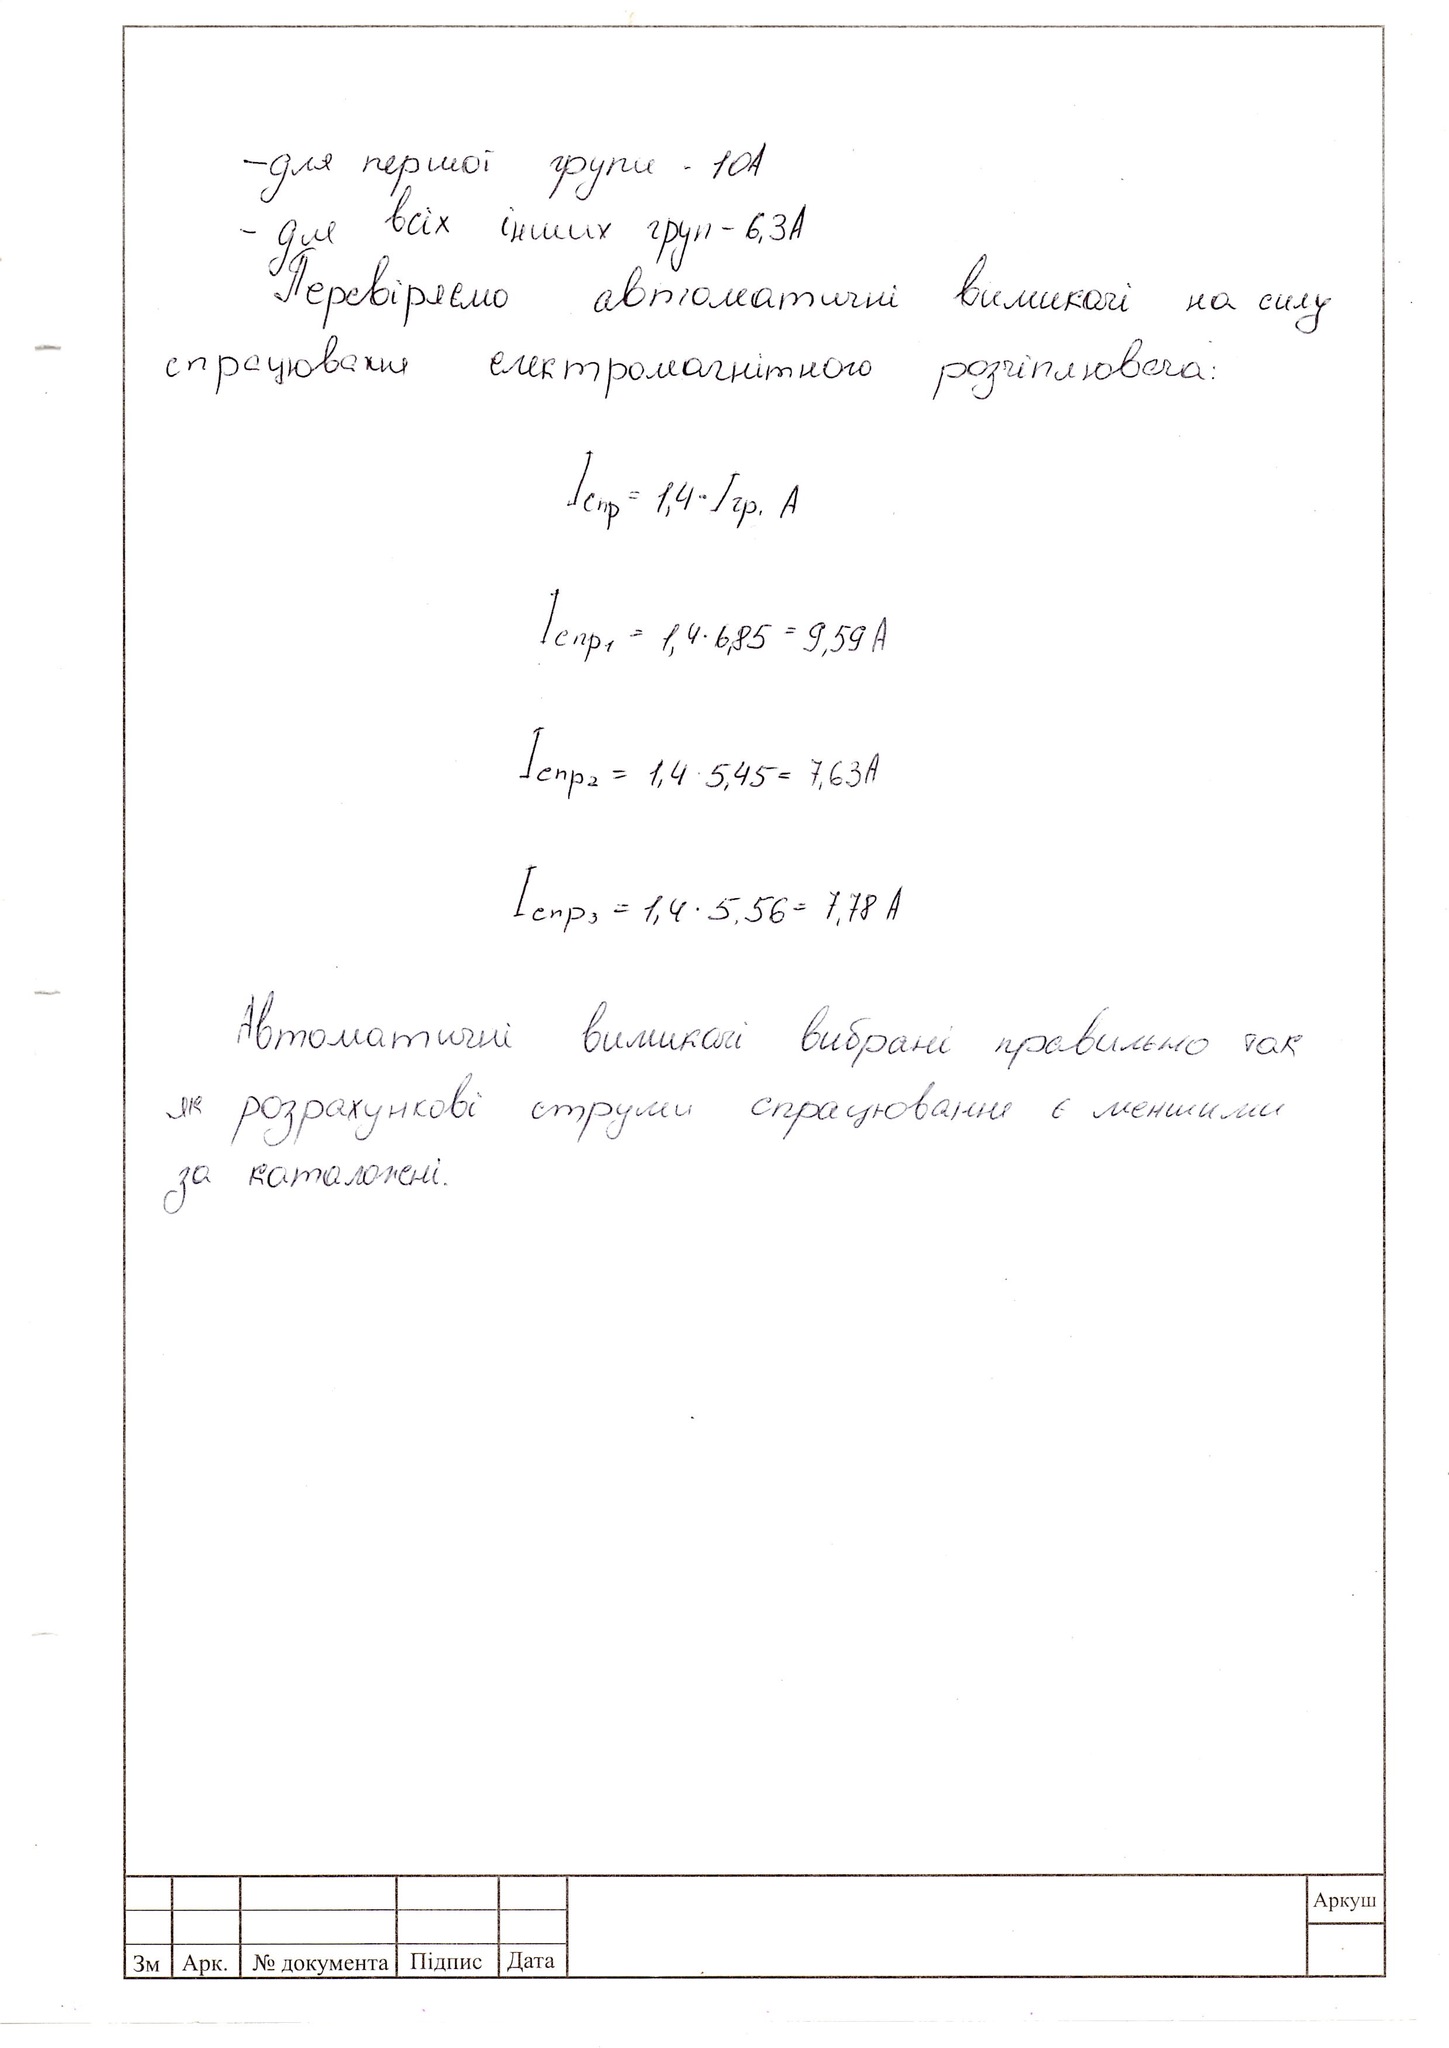 -для першої групи - 10А
- для всіх інших груп - 6,3А
Перевіряємо автоматичні вимикачі на силу
спрацювання електромагнітного розчіплювача:
Iспр = 1,4 · Iгр. А
Iспр1 = 1,4 · 6,85 = 9,59 А
Iспр2 = 1,4 · 5,45 = 7,63А
Iспр3 = 1,4 · 5,56 = 7,78 А
Автоматичні вимикачі вибрані правильно так
як розрахункові струми спрацювання є меншими
за каталожні.
Аркуш
Зм Арк. № документа Підпис Дата